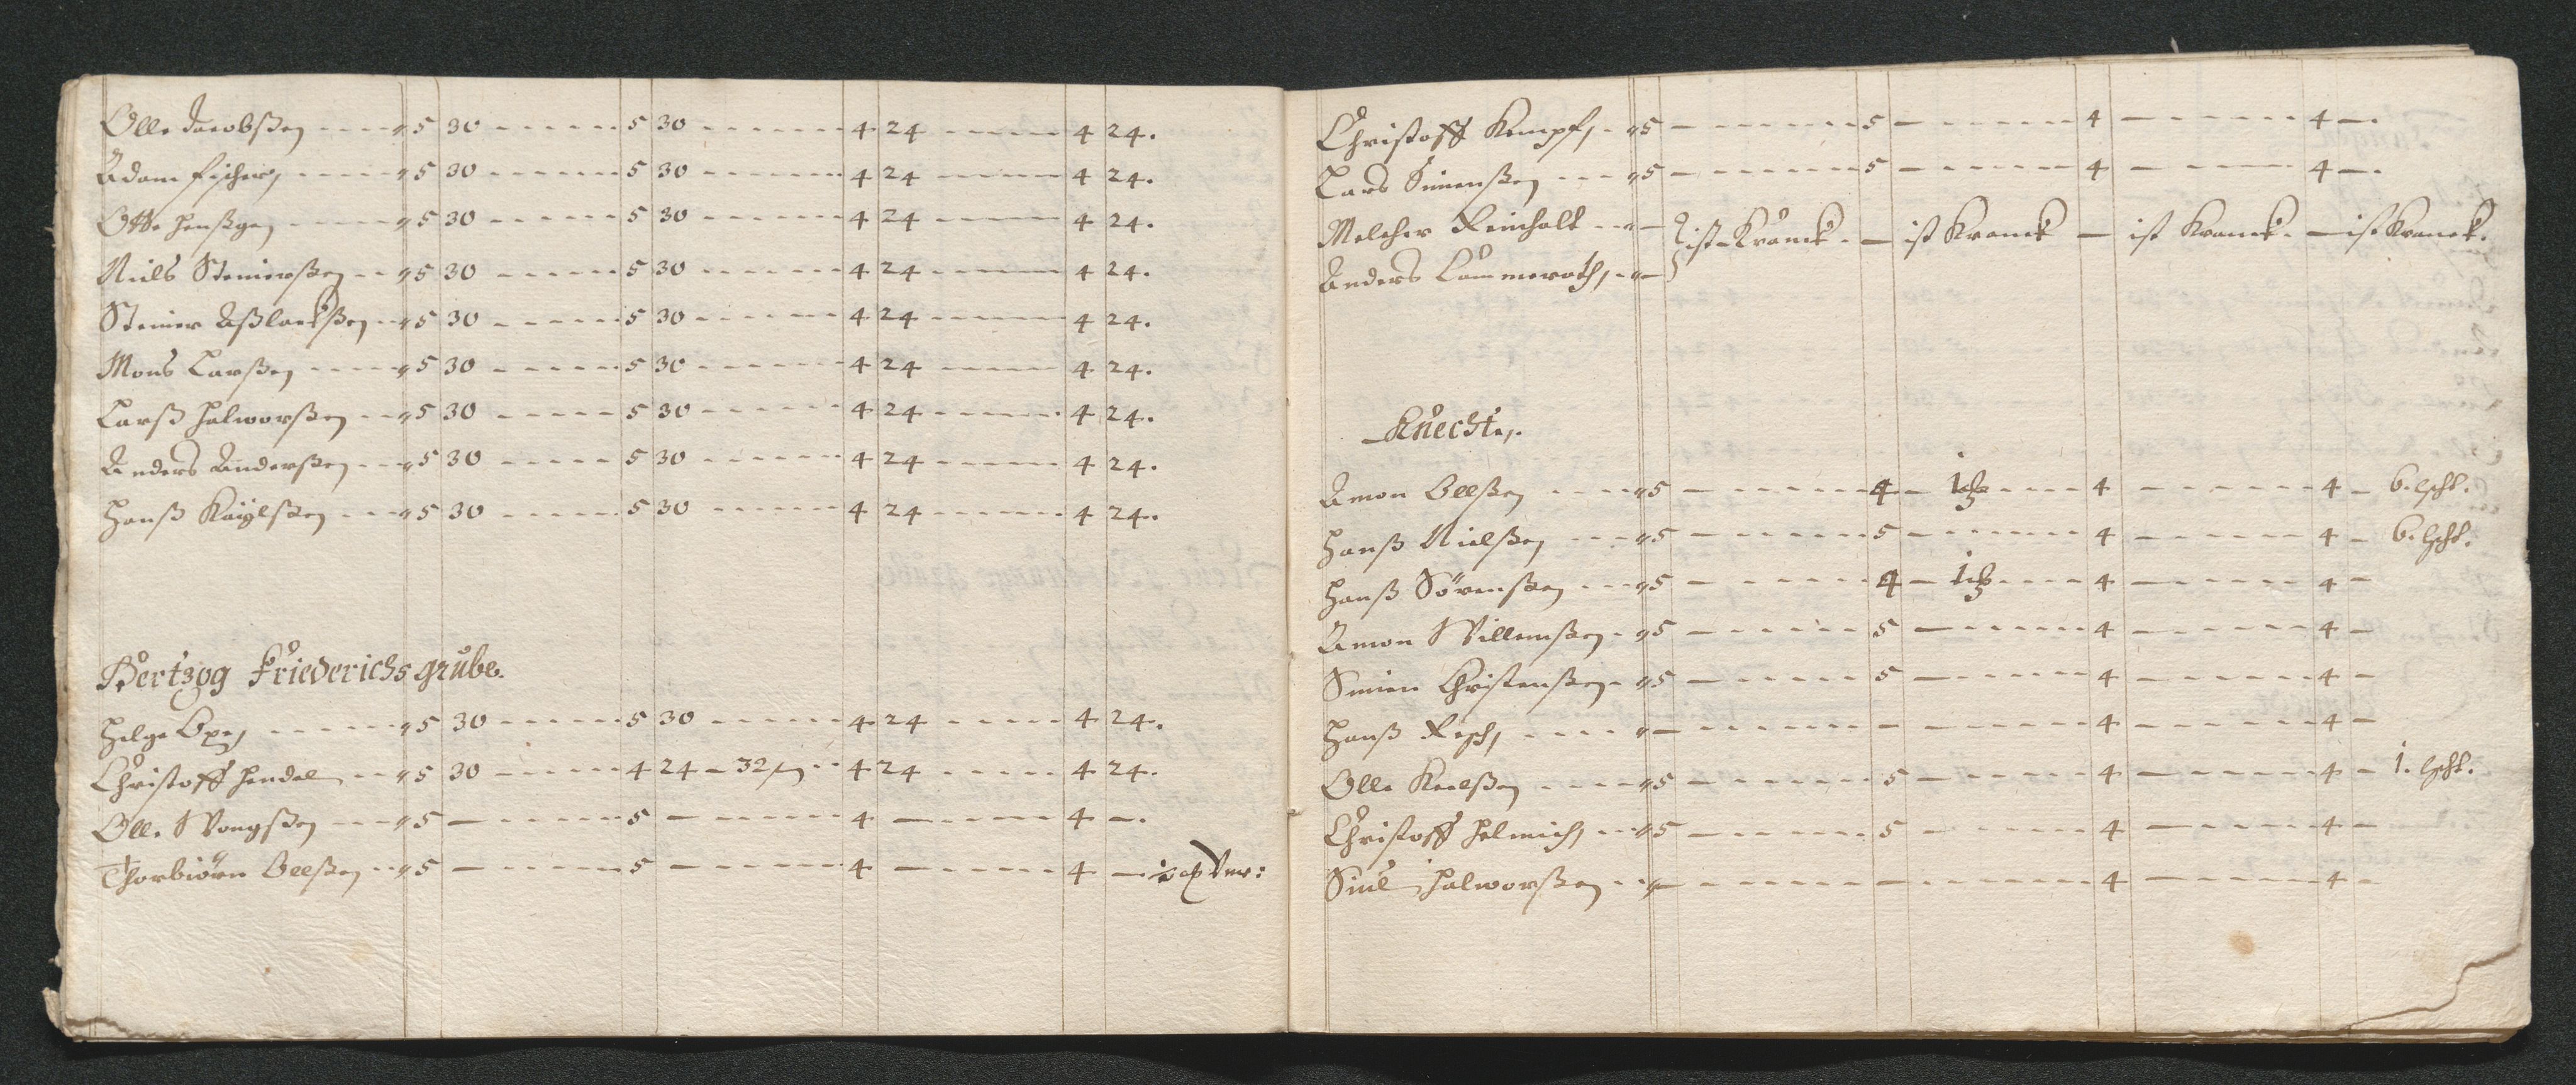 Olle Jacobßen ---- 5 30 ------ 5 30 ------- 4 24 ------ 4 24.
Adam Fischer, ---- 5 30 ------ 5 30 ------- 4 24 ------ 4 24.
Otte Henßgen ---- 5 30 ------ 5 30 ------- 4 24 ------ 4 24.
Niels Steinerßen -- 5 30 ------ 5 30 ------- 4 24 ------ 4 24.
Steiner Aßlackßen -- 5 30 ------ 5 30 ------- 4 24 ------ 4 24.
Mons Larßen ---- 5 30 ------ 5 30 ------- 4 24 ------ 4 24.
Larß Halworßen -- 5 30 ------ 5 30 ------- 4 24 ------ 4 24.
Anders Anderßen --- 5 30 ------ 5 30 ------- 4 24 ------ 4 24.
Hanß Kaÿlßen --- 5 30 ------ 5 30 ------- 4 24 ------ 4 24.
Hertzog Friederichs grube.
Helge Open, ----- 5 30 ------ 5 30 ------ 4 24 ----- 4 24.
Christoff Hendel -- 5 30 ------ 4 24 - 32 -- 4 24 ----- 4 24.
Olle Wongßen --- 5 ------ 5 ------ 4 ------ 4 -.
Thorbiörn Olleßen -- 5 ------ 5 ------ 4 ------ 4 -
Christoff Kempf, - 5 ------- 5 ------ 4 ------ 4 -.
Lars Simenßen --- 5 ------- 5 ------ 4 ------ 4 -.
Melcher Reinholt --- ist Kranck. - ist Kranck - ist Kranck. - ist Kranck.
Anders Lammeroth, --
Knechte,.
Amon Olleßen ---- 5 ------- 4 - 1 ---- 4 ------ 4 - 6. lscht.
Hanß Nielßen --- 5 ------- 5 ------ 4 ------ 4 - 6. lscht.
Hanß Sörenßen --- 5 ------- 4 - 1 ---- 4 ------ 4 -
Amon Willemßen - 5 ------- 5 ------ 4 ------ 4 -
Simen Christenßen - 5 ------- 5 ------ 4 ------ 4 -
Hanß Resch, ---- ------- - ------ 4 ------ 4 -
Olle Keelßen ---- 5 ------- 5 ------ 4 ------ 4 - 1. lscht.
Christoff Helmich, -- 5 ------- 5 ------ 4 ------ 4 -
Siul Halworßen -- ------- - ------ 4 ------ 4 -